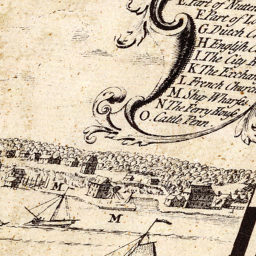 E Part of
F Part of
G. Dutch C
H English C
I. The Cap
K The Exchan
L French Churc
M. Ship Wharfes
N. The Ferry House
O. Cattle Penn
M
M